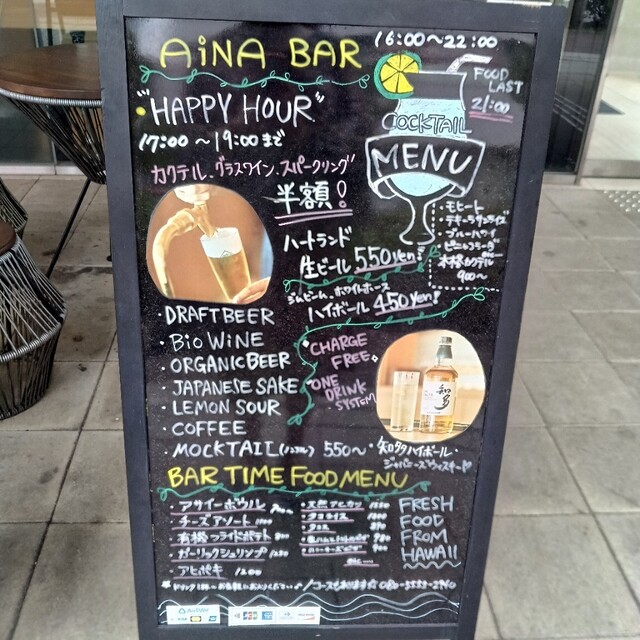 AiNA BAR
16:00～22:00
FOOD
LAST
21:00
"HAPPY HOUR"
17:00～19:00まで
カクテル、グラスワイン、スパークリング
半額!
COCKTAIL
MENU
・モヒート
・テキーラサンライズ
・ブルーハワイ
・ピニャコラーダ
etc
本格カクテル
900～
ハートランド
生ビール 550yen!
ジムビーム、ホワイトホース
ハイボール 450yen!
・DRAFT BEER
・BiO WiNE
・ORGANIC BEER
・JAPANESE SAKE
・LEMON SOUR
・COFFEE
・MOCKTAIL(ノンアル) 550～
CHARGE
FREE
ONE
DRINK
SYSTEM
知多
・知多ハイボール・
ジャパニーズウィスキー
BAR TIME FOOD MENU
・アサイーボウル
・チーズアソート
・有機フライドポテト
・ガーリックシュリンプ 1250
・アヒポキ 1200
・タコライス
・タコス
etc
FRESH
FOOD
FROM
HAWAII
AirPAY
VISA
JCB